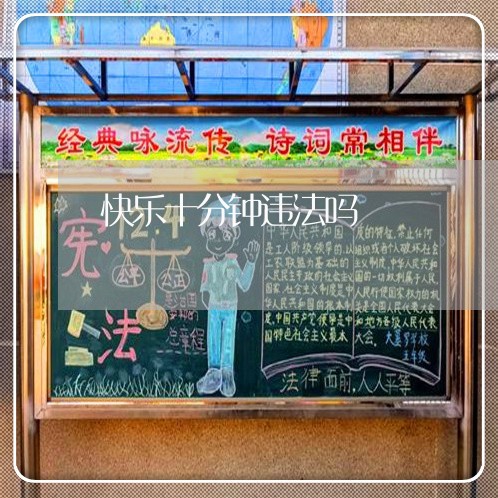 经典咏流传 诗词常相伴
快乐十分钟违法吗
12.4
宪法
公平 公正
总章程
中华人民共和国
是工人阶级领导的,以
工农联盟为基础的
人民民主专政的社会主义
国家,社会主义制度是中
华人民共和国的根本制
度,中国共产党领导是中
国特色社会主义最本
质的特征,禁止任何
组织或者个人破坏社会
主义制度,中华人民共和
国的一切权利属于人民,
人民行使国家权力的机
关是全国人民代表大会
和地方各级人民代表
大会。
五年级
法律面前,人人平等